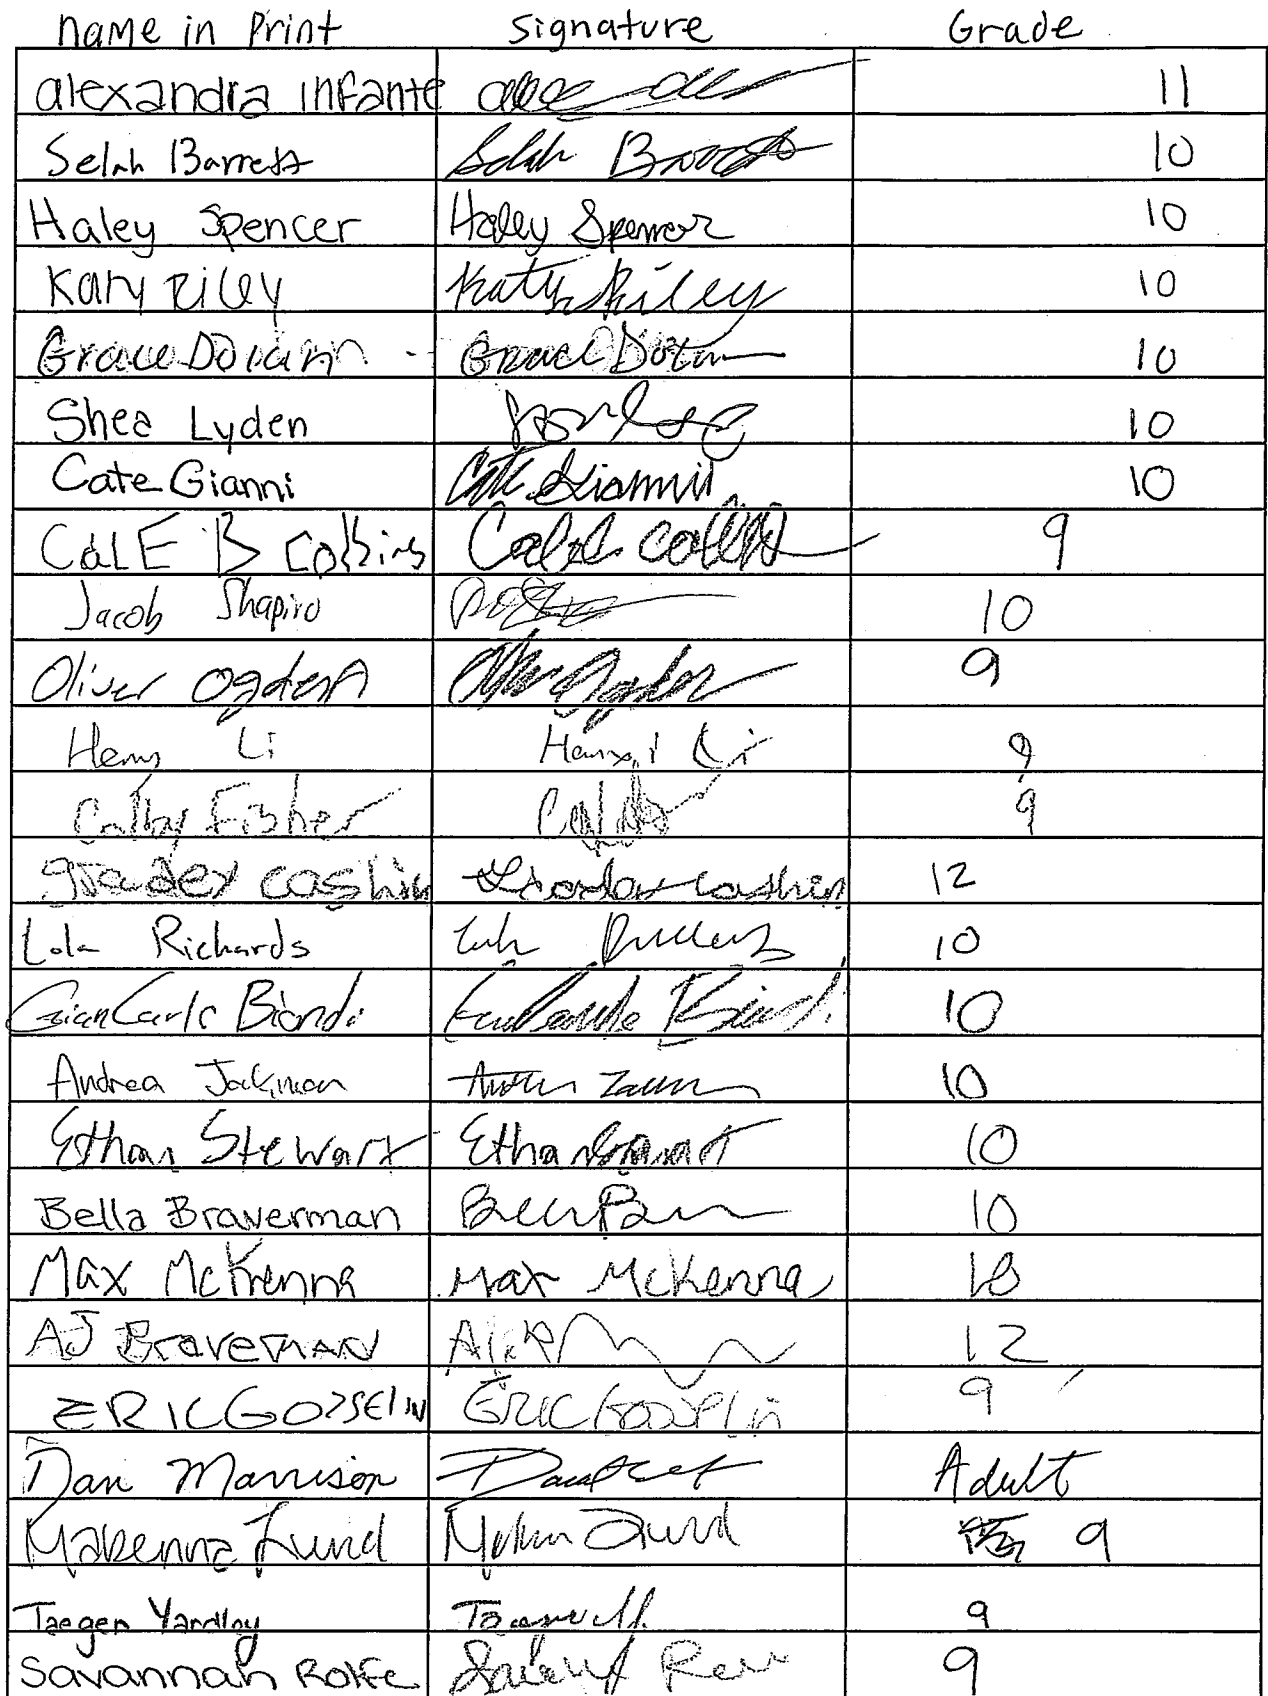 name in Print signature Grade
alexandra infante 11
Selah Barrett Selah Barrett 10
Haley Spencer Haley Spencer 10
Katy Riley Katy Riley 10
Grace Dolan Grace Dolan 10
Shea Lyden 10
Cate Gianni Cate Gianni 10
CaLE B Collins Caleb Collins 9
Jacob Shapiro 10
Oliver Ogden Oliver Ogden 9
Henry Li Hanxi Li 9
Colby Fisher Colby 9
cashin cashin 12
Lola Richards 10
GianCarlo Biondi GianCarlo Biondi 10
Andrea Jackman 10
Ethan Stewart Ethan Stewart 10
Bella Braverman 10
Max McKenna Max McKenna
AJ BraverMAN 12
ERIC GOSSELIN ERIC Gosselin 9
Dan Morrison Adult
Makenna Lund Lund 9
Taegen Yardley 9
Savannah Rolfe 9